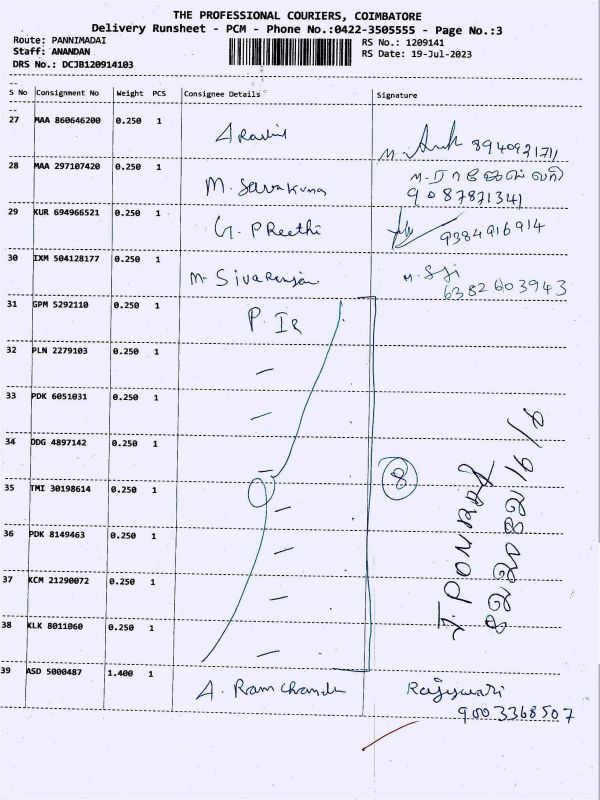 THE PROFESSIONAL COURIERS, COIMBATORE
Delivery Runsheet - PCM - Phone No.:0422-3505555 - Page No.:3
Route: PANNIMADAI RS No.: 1209141
Staff: ANANDAN RS Date: 19-Jul-2023
DRS No.: DCJB120914103
S No Consignment No Weight PCS Consignee Details Signature
27 MAA 860646200 0.250 1 M.
28 MAA 297107420 0.250 1 M. Saravkumar
9087871341
29 KUR 694966521 0.250 1 G. PReethi 9384916914
30 IXM 504128177 0.250 1 M. Sivaranjani M.
6382603943
31 GPM 5292110 0.250 1 P. IR
32 PLN 2279103 0.250 1 -
33 PDK 6051031 0.250 1 -
34 DDG 4897142 0.250 1 -
35 TMI 30198614 0.250 1 - 8
36 PDK 8149463 0.250 1 -
37 KCM 21290072 0.250 1 -
38 KLK 8011060 0.250 1 -
39 ASD 5000487 1.400 1 A. Ramchandr
9003368507